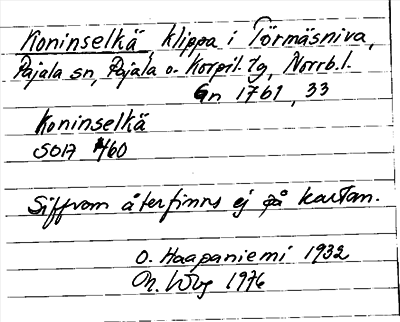 Koninselkä, klippa i Törmäsniva,
Pajala sn, Pajala o. Korpil. tg, Norrb. l.
Gn 1761, 33
Koninselkä
SOA 460
Siffran återfinns ej på kartan.
O. Haapaniemi 1932
1976